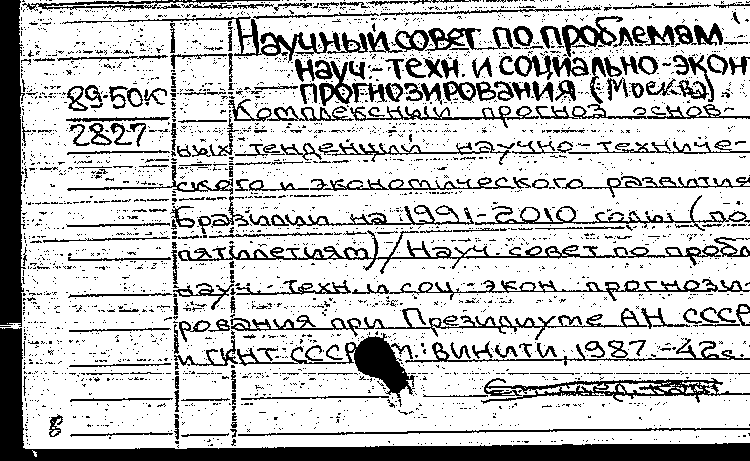 Научный совет по проблемам
науч.-техн. и социально-экон
прогнозирования (Москва).
89-50К
2827
Комплексный прогноз основ-
ных тенденций научно-техниче-
ского и экономического развития
Бразилии на 1991-2010 годы (по
пятилетиям)/Науч. совет по пробл
науч.-техн. и соц.-экон. прогнози-
рования при Президиуме АН СССР
и ГКНТ СССР М.: ВИНИТИ, 1987.-42с.